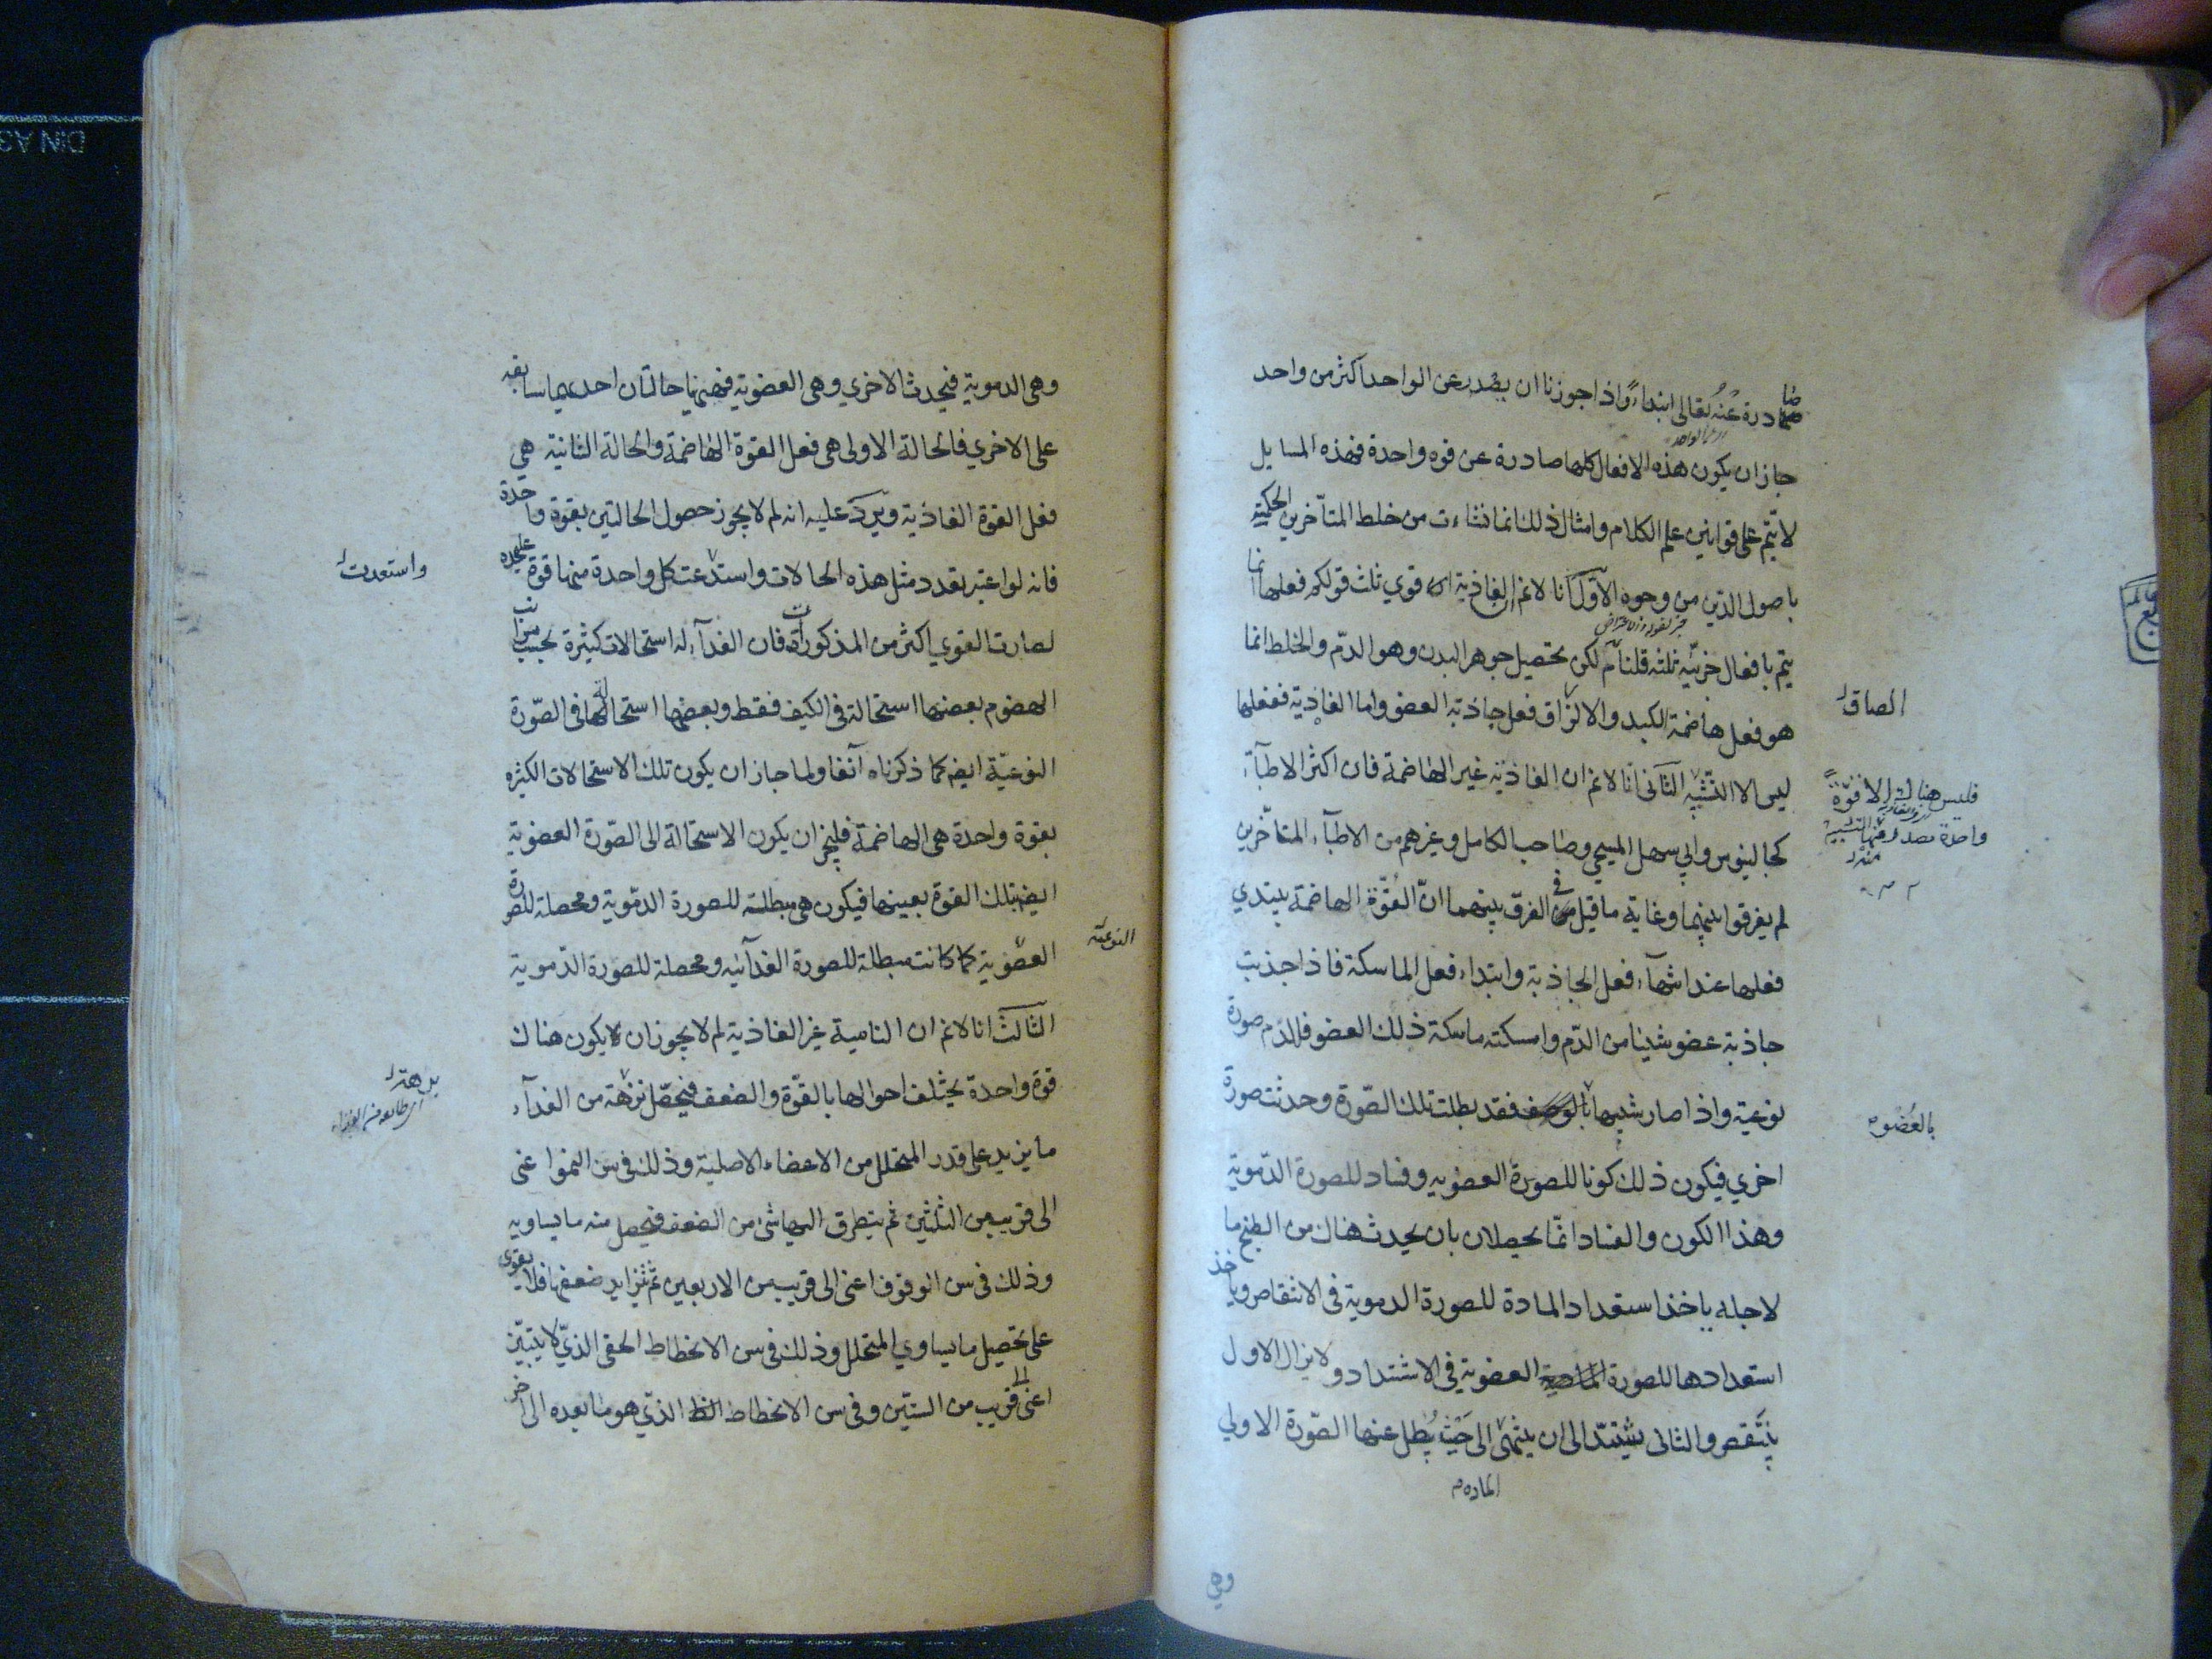 صادرة عنه تعالى ابتداء واذا جوزنا ان يصدر عن الواحد اكثر من واحد
جاز ان يكون هذه الافعال كلها صادرة عن قوه واحدة فهذه المسايل
لا تتم على قوانين علم الكلام وامثال ذلك انما نشاءت من خلط المتأخرين الحكمية
باصول الدين من وجوه الاول انا لا نم ان الغاذية قوي ثلث قولكم فعلها انما
يتم بافعال جزئيه ثلثه قلنا نم لكن تحصيل جوهر البدن وهو الدم والخلط انما
هو فعل هاضمة الكبد والالزاق فعل جاذبة العضو واما الغاذية ففعلها
الصاق
ليس الا التشبيه الثاني انا لا نم ان الغاذية غير الهاضمة فان اكثر الاطبآء
فليس هناك الا قوة
واحدة
كجالينوس وابي سهل المسيحي وصاحب الكامل وغيرهم من الاطبآء المتأخرين
لم يفرقوا بينهما وغاية ما قيل في الفرق بينهما ان القوة الهاضمة يبتدي
فعلها عند انتهآء فعل الجاذبة وابتداء فعل الماسكة فاذا جذبت
جاذبة عضو شيئا من الدم وامسكته ماسكة ذلك العضو فللدم صورة
نوعية واذا صار شبيها بالعضو فقد بطلت تلك الصورة وحدثت صورة
بالعضو
اخري فيكون ذلك كونا للصورة العضويه وفسادا للصورة الدموية
وهذا الكون والفساد انما يحصلان بان يحدث هناك من الطبخ ما
لاجله ياخذ استعداد المادة للصورة الدموية في الانتقاص وياخذ
استعدادها للصورة العضوية في الاشتداد ولا يزال الاول
ينتقص والثاني يشتد الى ان ينتهى الى حيث يبطل عنها الصورة الاولي
الماده
وهي
وهي الدموية فيحدث الاخري وهي العضوية فههنا حالتان احديهما سابقه
على الاخري فالحالة الاولى هي فعل القوة الهاضمة والحالة الثانية هي
فعل القوة الغاذية ويرد عليه انه لم لا يجوز حصول الحالتين بقوة واحدة
فانه لو اعتبر تعدد مثل هذه الحالات واستدعت كل واحدة منها قوة عليحده
واستعدت
لصارت القوي اكثر من المذكورات فان الغدآء له استحالات كثيرة بحسب مراتب
الهضوم بعضها استحالة في الكيف فقط وبعضها استحالة في الصورة
النوعية ايضم كما ذكرناه آنفا ولما جاز ان يكون تلك الاستحالات الكثيره
بقوة واحدة هي الهاضمة فليجز ان يكون الاستحالة الى الصورة العضوية
ايضم بتلك القوة بعينها فيكون هي مبطلة للصورة الدموية ومحصلة للصورة
العضوية كما كانت مبطلة للصورة الغدآئيه ومحصلة للصورة الدموية
النوعية
الثالث انا لا نم ان النامية غير الغاذية لم لا يجوز ان يكون هناك
قوة واحدة يختلف احوالها بالقوة والضعف فيحصل من الغدآء
ما يزيد على قدر المتحلل من الاعضاء الاصلية وذلك في سن النمو اعنى
الى قريب من الثلثين ثم يتطرق اليها شئ من الضعف فيحصل منه ما يساويه
وذلك في سن الوقوف اعنى الى قريب من الاربعين ثم يتزايد ضعفها فلا يقوى
على تحصيل ما يساوي المتحلل وذلك في سن الانحطاط الخفي الذي لا يتبين
اعنى الى قريب من الستين وفي سن الانحطاط الظ الذي هو ما بعده الى اخر